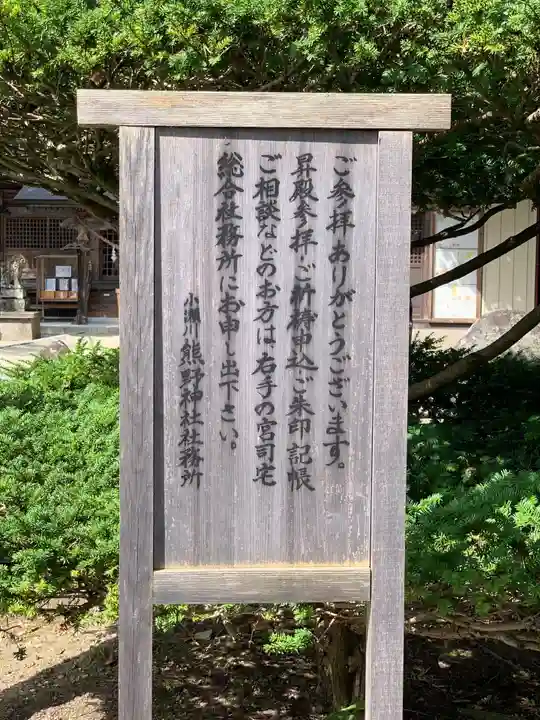 ご参拝ありがとうございます。
昇殿参拝・ご祈祷申込ご朱印記帳
ご相談などのお方は、右手の宮司宅
総合社務所にお申し出下さい。
小瀬川熊野神社社務所